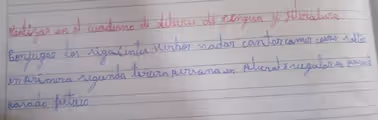 Realizar en el cuaderno de deberes de Lengua y Literatura
Conjugar los siguientes verbos nadar cantar comer correr salto
en primera segunda tercera persona en plural y singular en presente
pasado futuro